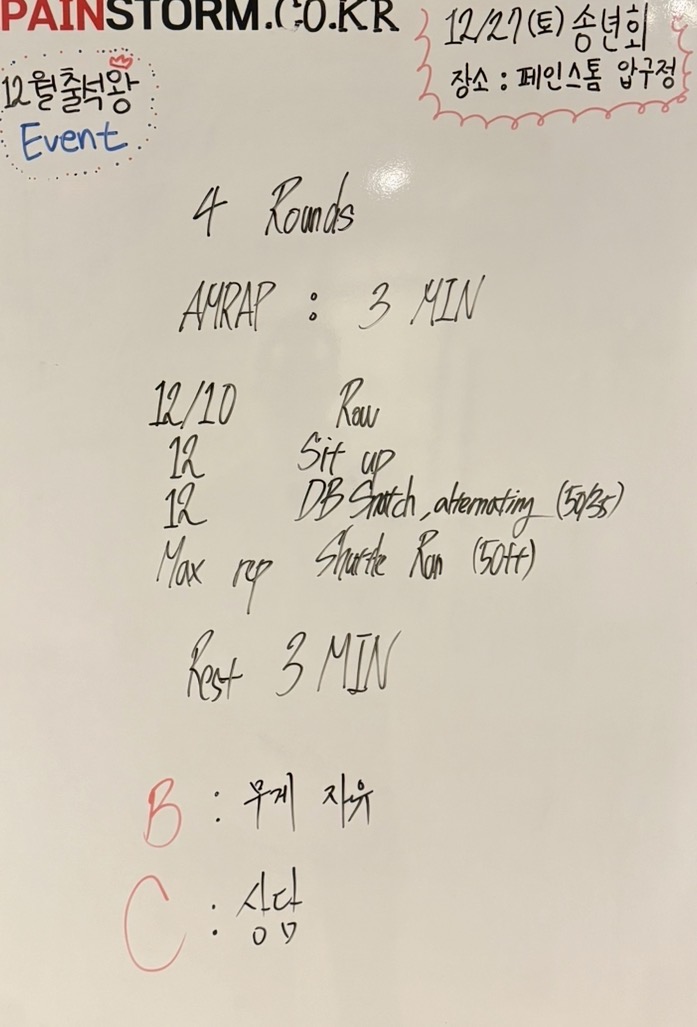 PAINSTORM.CO.KR
12/27(토) 송년회
장소 : 페인스톰 압구정
12월 출석왕
Event
4 Rounds
AMRAP : 3 MIN
12/10 Row
12 Sit up
12 DB Snatch, alternating (50/35)
Max rep Shuttle Run (50ft)
Rest 3 MIN
B : 무게 자유
C : 상담